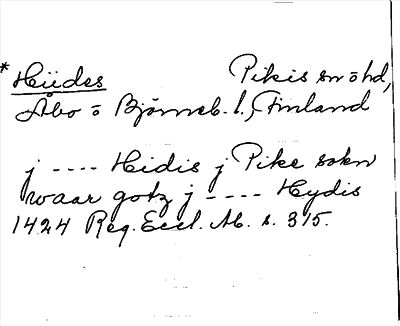 * Hiides Pikis sn o hd,
Åbo o Björneb. l., Finland
j ---- Hidis j Pike sokn
waar gotz j ---- Hydis
1424 Reg. Eccl. Ab. s. 315.